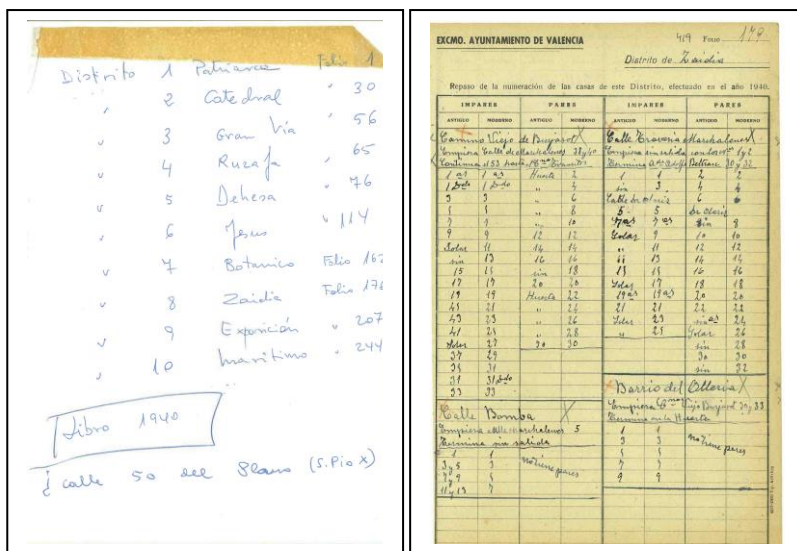 Distrito 1 Patriarca Folio 1
" 2 Catedral " 30
" 3 Gran Vía " 56
" 4 Ruzafa " 65
" 5 Dehesa " 76
" 6 Jesus " 114
" 7 Botanico Folio 162
" 8 Zaidia Folio 176
" 9 Exposición " 207
" 10 Maritimo " 244
Libro 1940
¿ calle 50 del Plano (S. Pio X)
EXCMO. AYUNTAMIENTO DE VALENCIA
Folio 179
Distrito de Zaidia
Repaso de la numeración de las casas de este Distrito, efectuado en el año 1940.
IMPARES PARES IMPARES PARES
ANTIGUO MODERNO ANTIGUO MODERNO ANTIGUO MODERNO ANTIGUO MODERNO
Camino Viejo de Burjasot X
Empieza Calle de Marchalenes 38 y 40
1 as 1 as Huerto 2
1 Ddo 1 Ddo " 4
3 3 " 6
5 5 " 8
7 7 " 10
9 9 12 12
Solar 11 14 14
sin 13 16 16
15 15 sin 18
17 17 20 20
19 19 Huerto 22
45 21 " 24
43 23 " 26
41 25 " 28
Solar 27 30 30
37 29
35 31
31 31 Ddo
33 33
Calle Bomba X
Empieza calle Marchalenes 5
Termina sin salida
1 1 no tiene pares
3 y 5 3
7 y 9 5
11 y 13 7
Calle Travesia Marchalenes X
1 1 2 2
sin 3 4 4
Calle de Olariz 6 6
5 5 De Olariz
7 as 7 as sin 8
Solar 9 10 10
" 11 12 12
11 13 14 14
15 15 16 16
Solar 17 18 18
19 as 19 as 20 20
21 21 22 22
Solar 23 sin as 24
" 25 Solar 26
sin 28
30 30
sin 32
Barrio del Olleria X
Empieza Cno Viejo Burjasot 31 y 33
Termina en la Huerta
1 1 no tiene pares
3 3
5 5
7 7
9 9